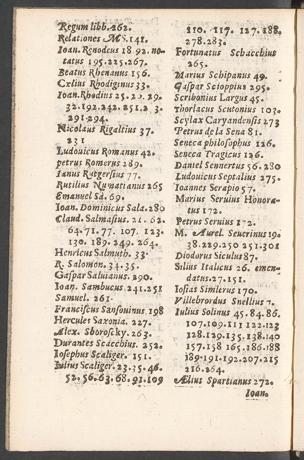 Regum libb. 262.
Relationes MS. 141.
Ioan. Renodeus 18. 92. no-
tatus 195. 215. 267.
Beatus Rhenanus 156.
Cælius Rhodiginus 33.
Ioan. Rhodius 25. 22. 29.
32. 192. 242. 851. 2. 3.
291. 294.
Nicolaus Rigaltius 37.
231
Ludouicus Romanus 42.
petrus Romerus 289.
Ianus Rutgersius 77.
Rutilius Numatianus 265
Emanuel Sa. 69.
Ioan. Dominicus Sala. 280
Claud. Salmasius. 21. 62.
64. 71. 77. 107. 123.
130. 189. 249. 264.
Henricus Salmuth. 33.
R. Salomon. 34. 35.
Gaspar Saluianus. 290.
Ioan. Sambucus. 241. 251
Samuel. 261.
Franciscus Sansouinus 198
Hercules Saxonia. 227.
Alex. Sboroscky. 263.
Durantes Scacchius. 252.
Iosephus Scaliger. 151.
Iulius Scaliger. 23. 35. 46.
52. 56. 63. 68. 91. 109
110. 117. 127. 188.
278. 283.
Fortunatus Schacchius
265.
Marius Schipanus 49.
Gaspar Scioppius 295.
Scribonius Largus 45.
Thorlacus Scutonius 103.
Scylax Caryandensis 273
Petrus de la Sena 81.
Seneca philosophus 126.
Seneca Tragicus 126.
Daniel Sennertus 56. 280
Ludouicus Septalius 275.
Ioannes Serapio 57.
Marius Seruius Honora-
tus 172.
Petrus Seruius 172.
M. Aurel. Seuerinus 19.
38. 229. 250 251. 301
Diodorus Siculus 87.
Silius Italicus 26. emen-
datus. 27. 151.
Iosias Similerus 170.
Villebrordus Snellius 7.
Iulius Solinus 45. 84. 86.
107. 109. 111 122. 123
128. 129. 135. 138. 140
157. 158 165. 186. 188
189. 191. 192. 207. 215
216. 264.
Ælius Spartianus 272.
Ioan.